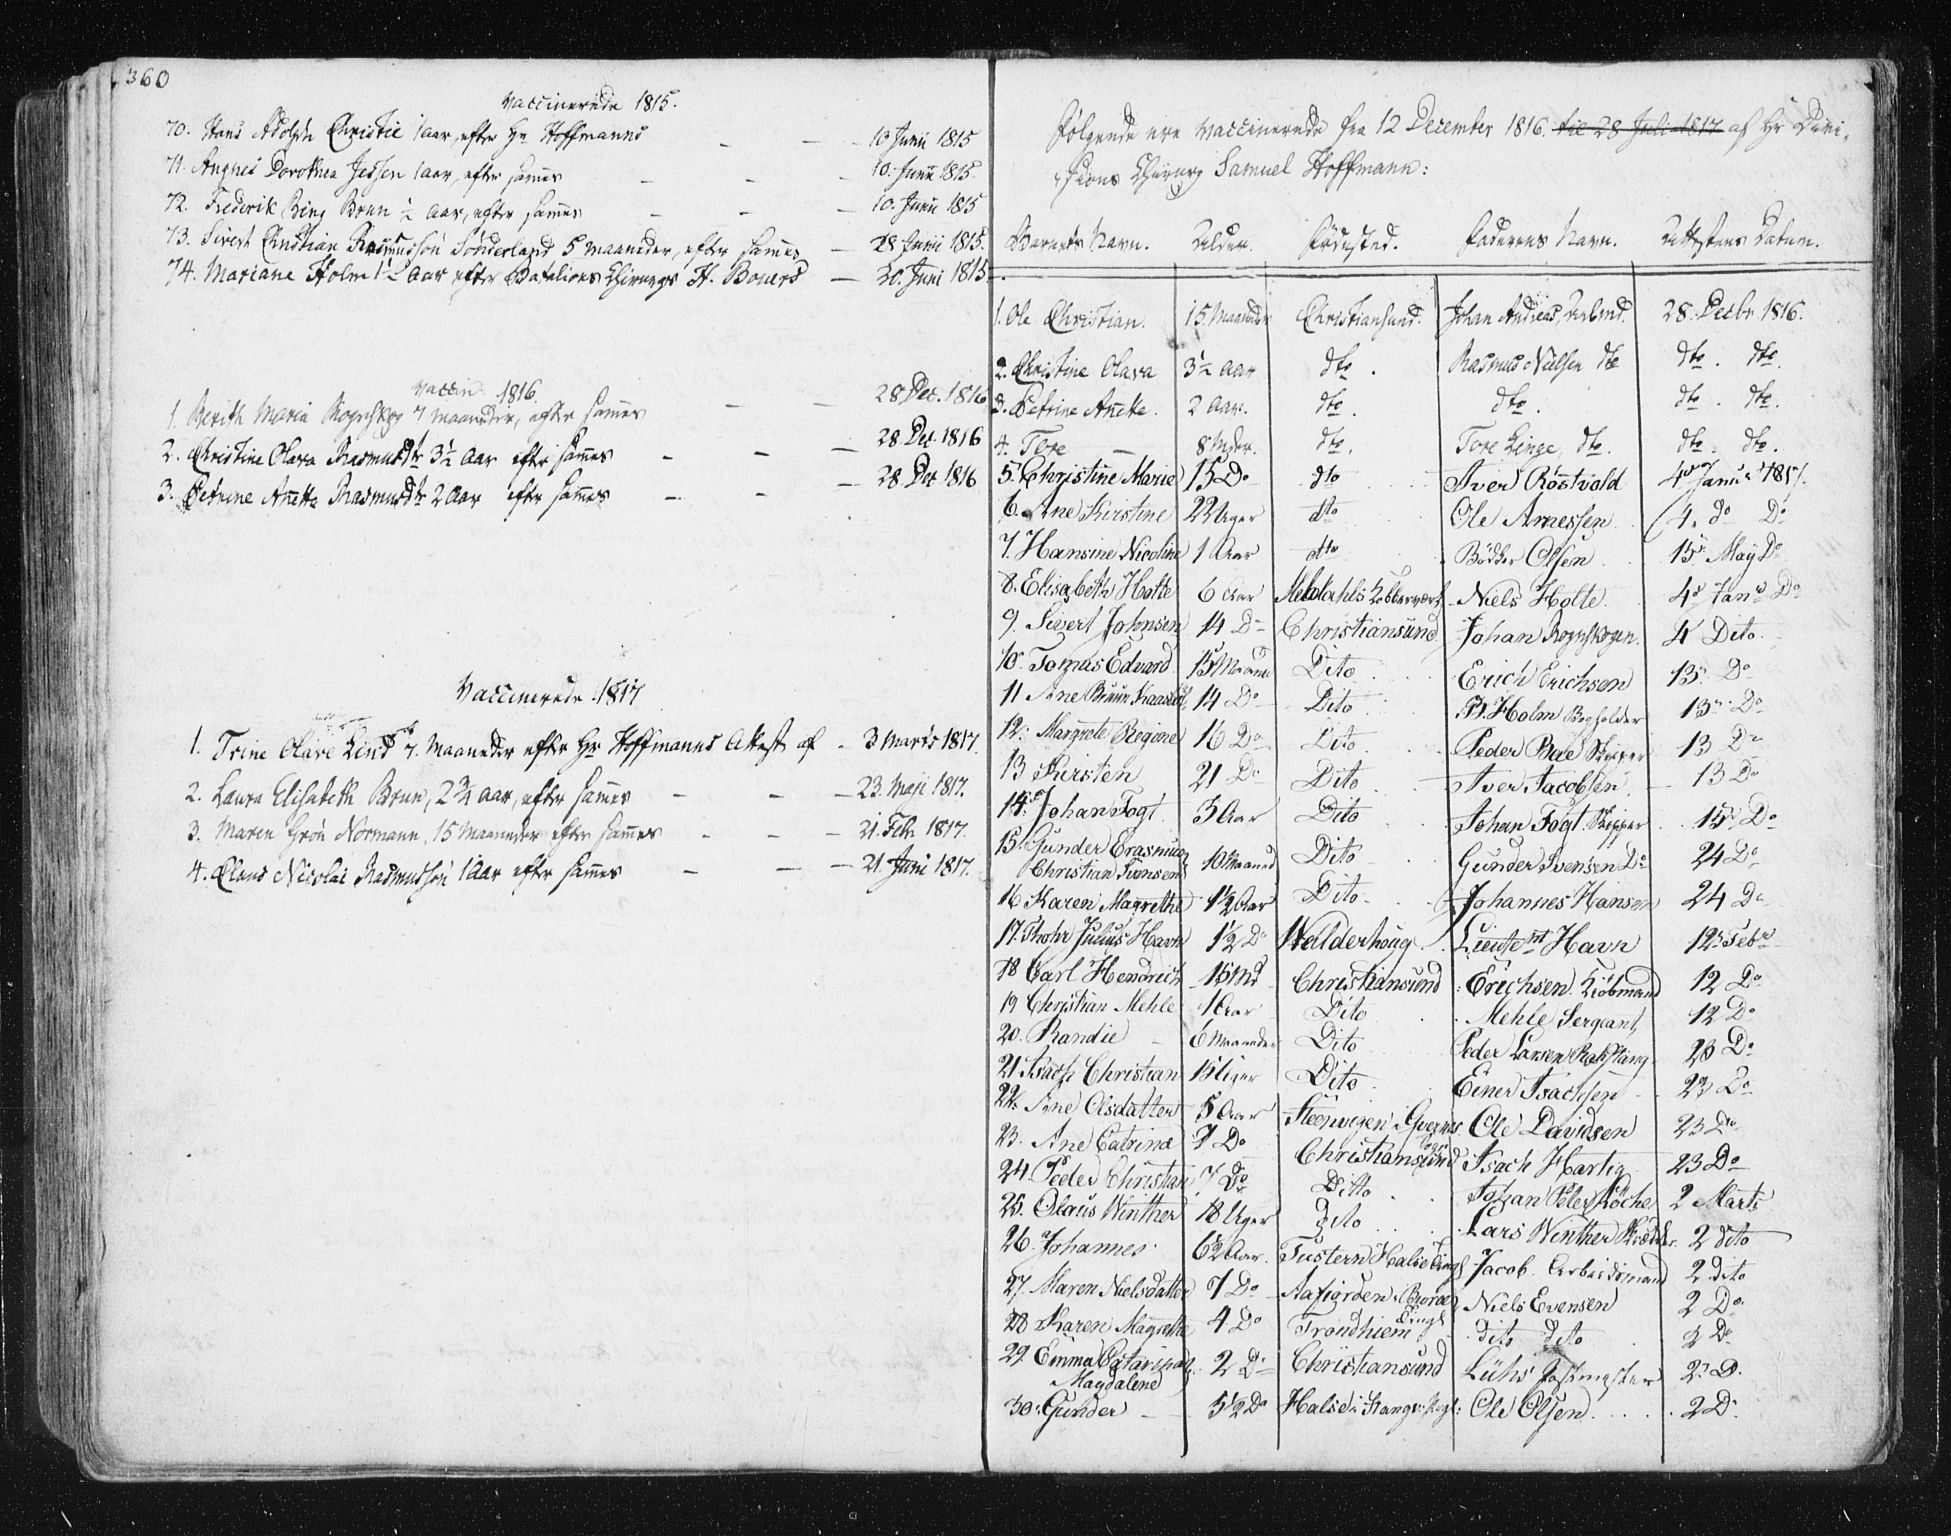 360
Vaccinerede 1815.
70. Hans Adolph Christie 1 aar, efter Hr Hoffmanns - - - 10 Junii 1815
71. Angnes Dorothea Jessen 1 aar, efter sammes - - - 10. Junii 1815
72. Frederik Bing Brun ½ aar, efter sammes - - - 10. Junii 1815
73. Sivert Christian Rasmussøn Sønderland 5 maaneder, efter sammes - 28 Junii 1815.
74. Mariane Holm 1½ aar efter Batalions Chirurgs H. Bouers - 30. Juni 1815.
Vaccin. 1816.
1. Berith Maria Rognskog 7 maaneder, efter sammes - - - 28 Dec. 1816
2. Christine Olava Rasmusdtr 3½ aar efter sammes - - - 28 Dec. 1816
3. Petrine Anette Rasmusdtr 2 aar efter sammes - - - 28 Dec 1816
Vaccinerede 1817
1. Trine Olave Lind 7. Maaneder efter Hr Hoffmanns Attest af - 3 Marts 1817.
2. Laura Elisabeth Brun, 2¾ aar, efter sammes - - - 23. Maji 1817.
3. Maren Grøn Normann, 15 Maaneder efter sammes - - - 21. Feb. 1817.
4. Claus Nicolai Rasmussøn 1 aar efter sammes - - - 21. Juni 1817.
Følgende ere vaccinerede fra 12 December 1816 til 28 Juli 1817 af Hr Divi-
sions Chirurg Samuel Hoffmann:
Barnets Navn. Alder. Fødested. Faderens Navn. Attestens Datum.
1. Ole Christian. 15. Maaneder Christiansund. Johan Andreas, Arbmd. 28. Decbr 1816.
2. Christine Olava 3½ aar dto. Rasmus Nielsen dto dto. dto.
3. Petrine Anette. 2 aar. dto. dto. dto. dto.
4. Tore - 8 Mder. dto. Tore Linge, dto. dto. dto.
5. Christine Marie 15 Do dto Iver Röstvold 4de Januar 1817.
6. Ane Kirstine 22 Uger dto Ole Arnessen 4. do Do
7. Hansine Nicoline 1 Aar dto Bödker Olsen 15. May Do
8. Elisabeth Holte 6 aar Meldahls Kobberverk Niels Holte. 4de Janr Do
9. Sivert Johnsen 14 Do Christiansund Johan Rognskogen. 4 Dito.
10. Tomas Edvard 15 Maaned Dito Erich Erichsen 13. Do
11 Ane Bruun 14 Do Dito Holm Bogholder 13. Do
12. Margrete Regine 16 Do Dito Peder Skipper 13 Do
13 Kersten 21 Do Dito Iver Jacobsen 13 Do
14. Johan Fogt. 3 Aar Dito Johan Fogt. Skipper 15. Do
15. Gunder Erasmus
Christian Svensen 10 Maaned Dito Gunder Svensen Do 24 Do
16 Karen Magrethe 1½ Aar Dito Johannes Hansen 24 Do
17. Julius Havn 1½ Do Walderhoug Lieutent Havn 12. Febr
18 Carl Hendrich 16 Md Christiansund Erichsen. Kiöbmand 12 Do
19 Christian Mehle 1 Aar Dito Mehle Sergeant 12 Do
20. Randie - 6 Maaneder Dito Peder Larsen 23 Do
21 Isach Christian 14 Uger Dito Einer Isachsen 23 Do
22. Ane Olsdatter 5 Aar Ole Davidsen 23 Do
23. Ane Catrina 7 Do Christiansund Isach Hartig 23 Do
24 Peder Christian 7 Do Ditto Johan Peter Röche 2 Marti
25. Olaus Winther 18 Uger Dito Lars Winther 2 dito
26. Johannes 6½ Aar. Tustern Halse Tingl Jacob Arbeidsmand 2 dito
27. Maren Nielsdatter 7 Do Aafiorden Tingl Niels Evensen 2 Do.
28 Karen Magrethe 4 Do Trondhiem dito dito 2 Do
29. Emma Catarina
Magdalene 2 Do Christiansund Lühs Postmester 2. D.
30. Gunder 5½ Do Halse Ole Olsen 2 D.